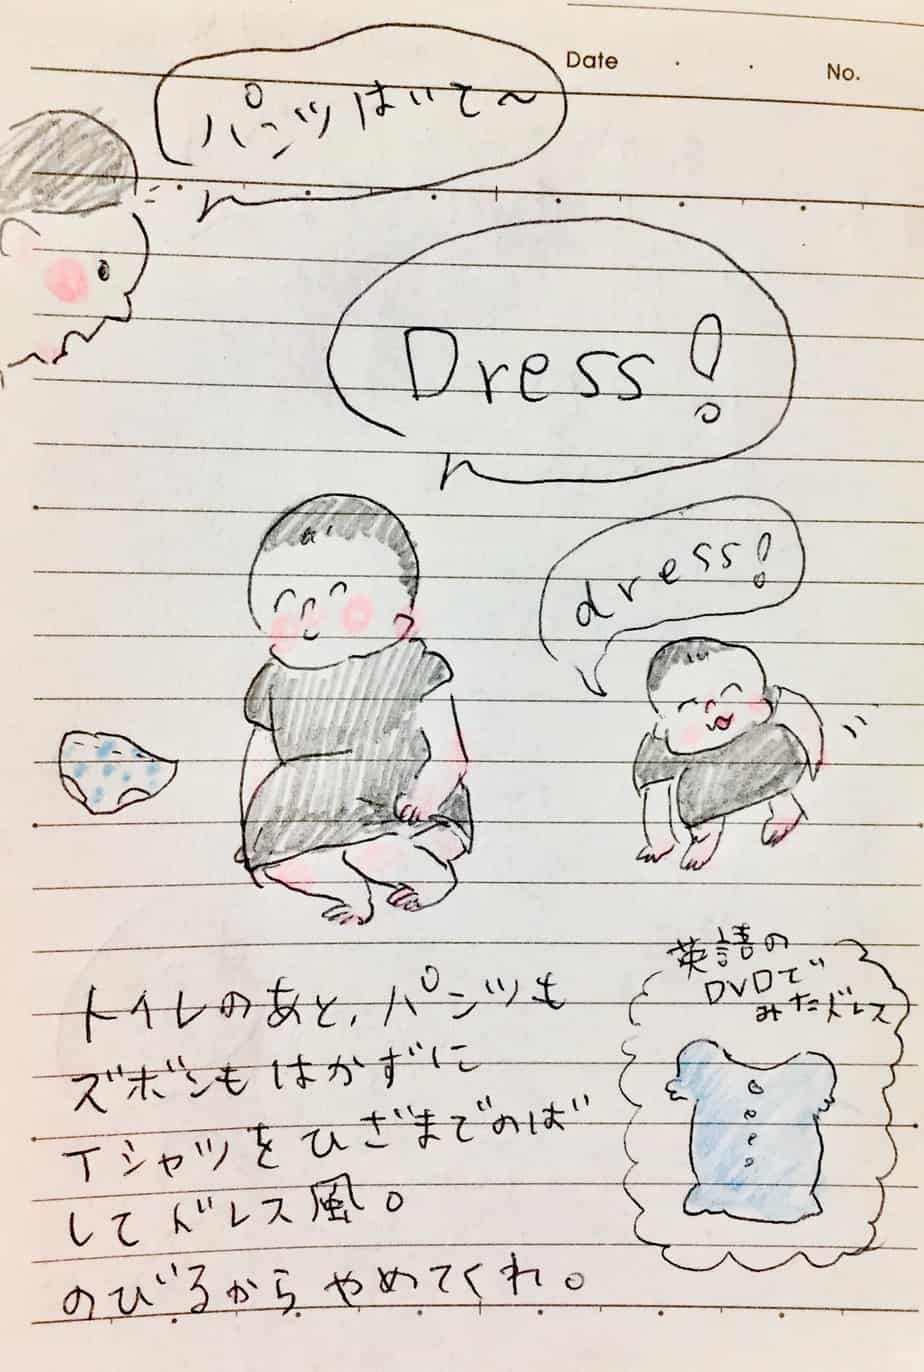 Date . .
No.
パンツはいて～
Dress!
dress!
英語の
DVDで
みたドレス
トイレのあと、パンツも
ズボンもはかずに
Tシャツをひざまでのば
してドレス風。
のびるからやめてくれ。